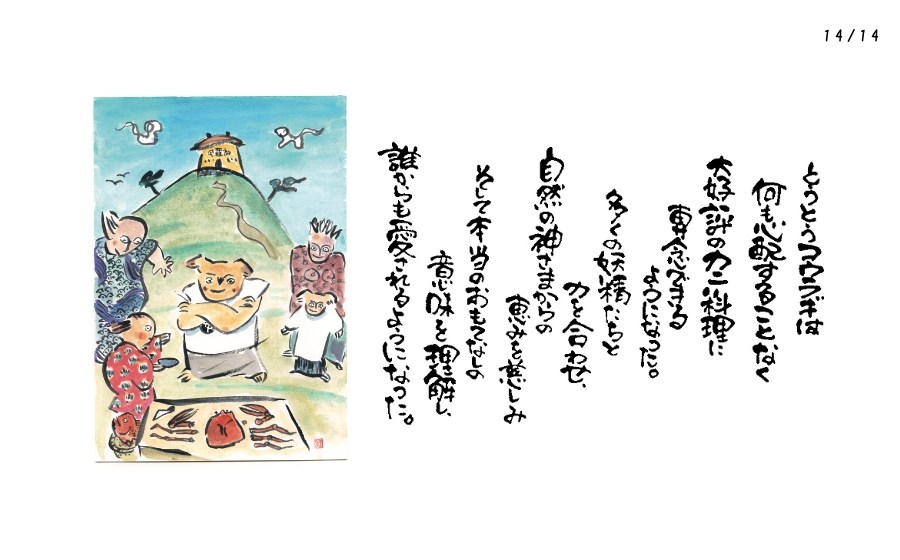 14/14
とうとうコウフギは
何も心配することなく
大好評のカニ料理に
専念できる
ようになった。
多くの妖精たちと
力を合わせ、
自然の神さまからの
恵みを慈しみ
そして本当のおもてなしの
意味を理解し、
誰からも愛されるようになった。